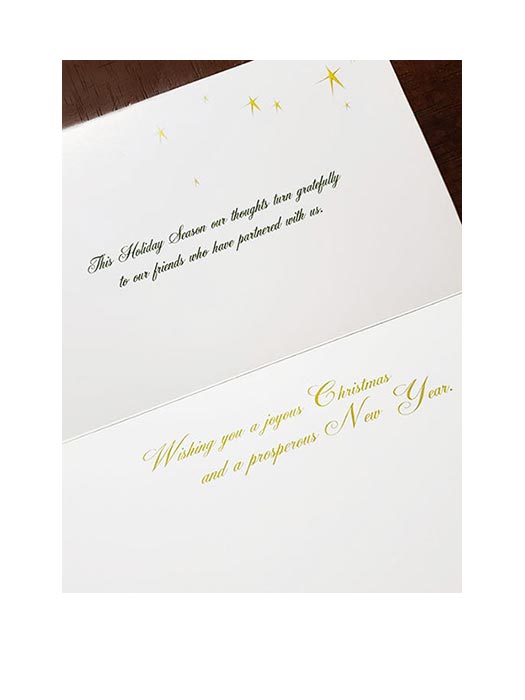 This Holiday Season our thoughts turn gratefully
to our friends who have partnered with us.
Wishing you a joyous Christmas
and a prosperous New Year.